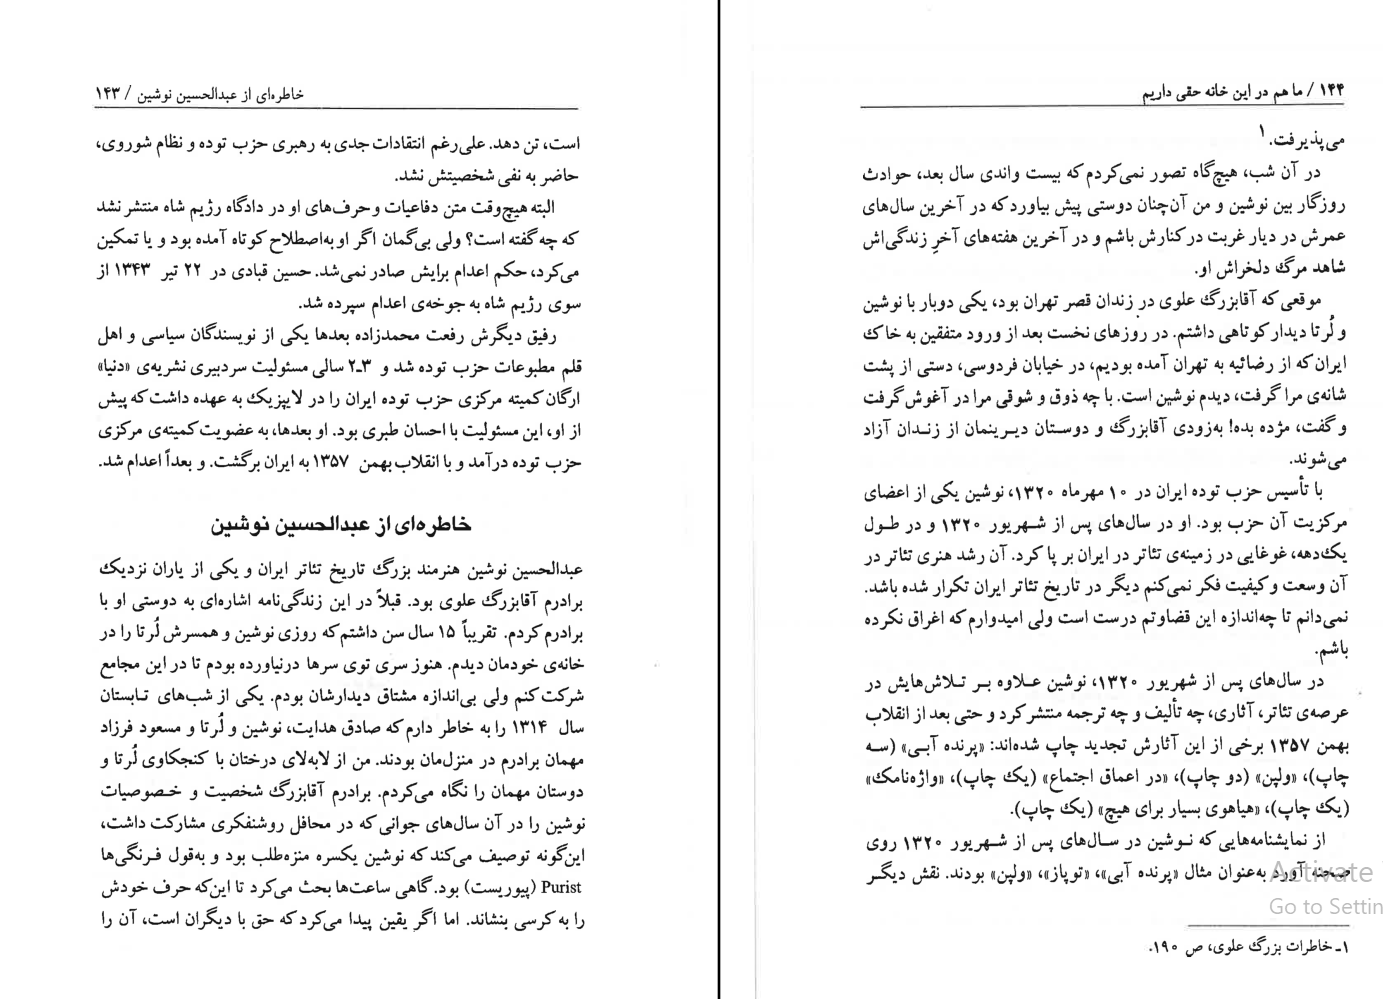 خاطره‌ای از عبدالحسین نوشین / ۱۴۳
است، تن دهد. علی‌رغم انتقادات جدی به رهبری حزب توده و نظام شوروی،
حاضر به نفی شخصیتش نشد.
البته هیچ‌وقت متن دفاعیات و حرف‌های او در دادگاه رژیم شاه منتشر نشد
که چه گفته است؟ ولی بی‌گمان اگر او به‌اصطلاح کوتاه آمده بود و یا تمکین
می‌کرد، حکم اعدام برایش صادر نمی‌شد. حسین قبادی در ۲۲ تیر ۱۳۴۳ از
سوی رژیم شاه به جوخه‌ی اعدام سپرده شد.
رفیق دیگرش رفعت محمدزاده بعدها یکی از نویسندگان سیاسی و اهل
قلم مطبوعات حزب توده شد و ۳ـ۲ سالی مسئولیت سردبیری نشریه‌ی «دنیا»
ارگان کمیته مرکزی حزب توده ایران را در لایپزیک به عهده داشت که پیش
از او، این مسئولیت با احسان طبری بود. او بعدها، به عضویت کمیته‌ی مرکزی
حزب توده درآمد و با انقلاب بهمن ۱۳۵۷ به ایران برگشت. و بعداً اعدام شد.
خاطره‌ای از عبدالحسین نوشین
عبدالحسین نوشین هنرمند بزرگ تاریخ تئاتر ایران و یکی از یاران نزدیک
برادرم آقابزرگ علوی بود. قبلاً در این زندگی‌نامه اشاره‌ای به دوستی او با
برادرم کردم. تقریباً ۱۵ سال سن داشتم که روزی نوشین و همسرش لُرتا را در
خانه‌ی خودمان دیدم. هنوز سری توی سرها درنیاورده بودم تا در این مجامع
شرکت کنم ولی بی‌اندازه مشتاق دیدارشان بودم. یکی از شب‌های تابستان
سال ۱۳۱۴ را به خاطر دارم که صادق هدایت، نوشین و لُرتا و مسعود فرزاد
مهمان برادرم در منزل‌مان بودند. من از لابه‌لای درختان با کنجکاوی لُرتا و
دوستان مهمان را نگاه می‌کردم. برادرم آقابزرگ شخصیت و خصوصیات
نوشین را در آن سال‌های جوانی که در محافل روشنفکری مشارکت داشت،
این‌گونه توصیف می‌کند که نوشین یکسره منزه‌طلب بود و به‌قول فرنگی‌ها
Purist (پیوریست) بود. گاهی ساعت‌ها بحث می‌کرد تا این‌که حرف خودش
را به کرسی بنشاند. اما اگر یقین پیدا می‌کرد که حق با دیگران است، آن را
۱۴۴ / ما هم در این خانه حقی داریم
می‌پذیرفت.۱
در آن شب، هیچ‌گاه تصور نمی‌کردم که بیست واندی سال بعد، حوادث
روزگار بین نوشین و من آن‌چنان دوستی پیش بیاورد که در آخرین سال‌های
عمرش در دیار غربت در کنارش باشم و در آخرین هفته‌های آخرِ زندگی‌اش
شاهد مرگ دلخراش او.
موقعی که آقابزرگ علوی در زندان قصر تهران بود، یکی دوبار با نوشین
و لُرتا دیدار کوتاهی داشتم. در روزهای نخست بعد از ورود متفقین به خاک
ایران که از رضائیه به تهران آمده بودیم، در خیابان فردوسی، دستی از پشت
شانه‌ی مرا گرفت، دیدم نوشین است. با چه ذوق و شوقی مرا در آغوش گرفت
و گفت، مژده بده! به‌زودی آقابزرگ و دوستان دیرینمان از زندان آزاد
می‌شوند.
با تأسیس حزب توده ایران در ۱۰ مهرماه ۱۳۲۰، نوشین یکی از اعضای
مرکزیت آن حزب بود. او در سال‌های پس از شهریور ۱۳۲۰ و در طول
یک‌دهه، غوغایی در زمینه‌ی تئاتر در ایران بر پا کرد. آن رشد هنری تئاتر در
آن وسعت و کیفیت فکر نمی‌کنم دیگر در تاریخ تئاتر ایران تکرار شده باشد.
نمی‌دانم تا چه‌اندازه این قضاوتم درست است ولی امیدوارم که اغراق نکرده
باشم.
در سال‌های پس از شهریور ۱۳۲۰، نوشین علاوه بر تلاش‌هایش در
عرصه‌ی تئاتر، آثاری، چه تألیف و چه ترجمه منتشر کرد و حتی بعد از انقلاب
بهمن ۱۳۵۷ برخی از این آثارش تجدید چاپ شده‌اند: «پرنده آبی» (سه
چاپ)، «ولپن» (دو چاپ)، «در اعماق اجتماع» (یک چاپ)، «واژه‌نامک»
(یک چاپ)، «هیاهوی بسیار برای هیچ» (یک چاپ).
از نمایشنامه‌هایی که نوشین در سال‌های پس از شهریور ۱۳۲۰ روی
صحنه آورد به‌عنوان مثال «پرنده آبی»، «توپاز»، «ولپن» بودند. نقش دیگر
Activate
Go to Settin
۱ـ خاطرات بزرگ علوی، ص ۱۹۰.